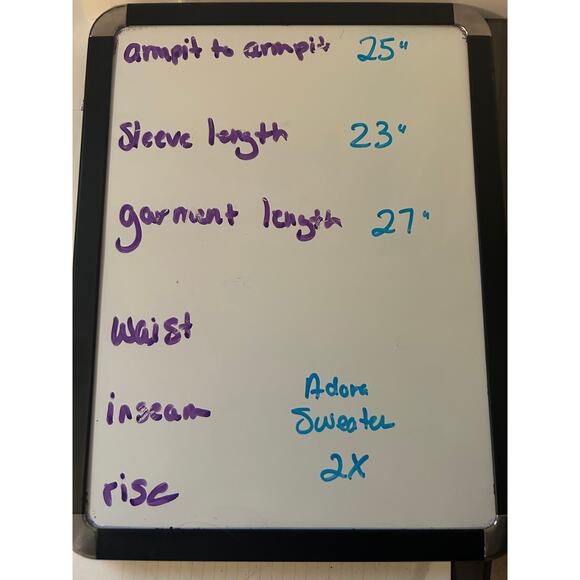 armpit to armpit 25"
Sleeve length 23"
garment length 27"
Waist
inseam
Adora
Sweater
2X
rise